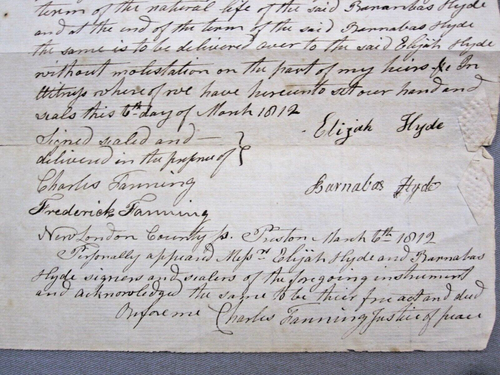 term of the natural life of the said Barnabas Hyde
and at the end of the term of the said Barnabas Hyde
the same is to be delivered over to the said Elijah Hyde
without molestation on the part of my heirs &c In
Wittness whereof we have hereunto set our hand and
seals this 6th day of March 1812
Signed sealed and
delivered in the presence of
Elijah Hyde
Charles Fanning
Barnabas Hyde
Frederick Fanning
New London County ss. Preston March 6th 1812
Personally appeard Messrs Elijah Hyde and Barnabas
Hyde signers and sealers of the foregoing instrument
and acknowledged the same to be their free act and deed
Before me Charles Fanning Justice of peace